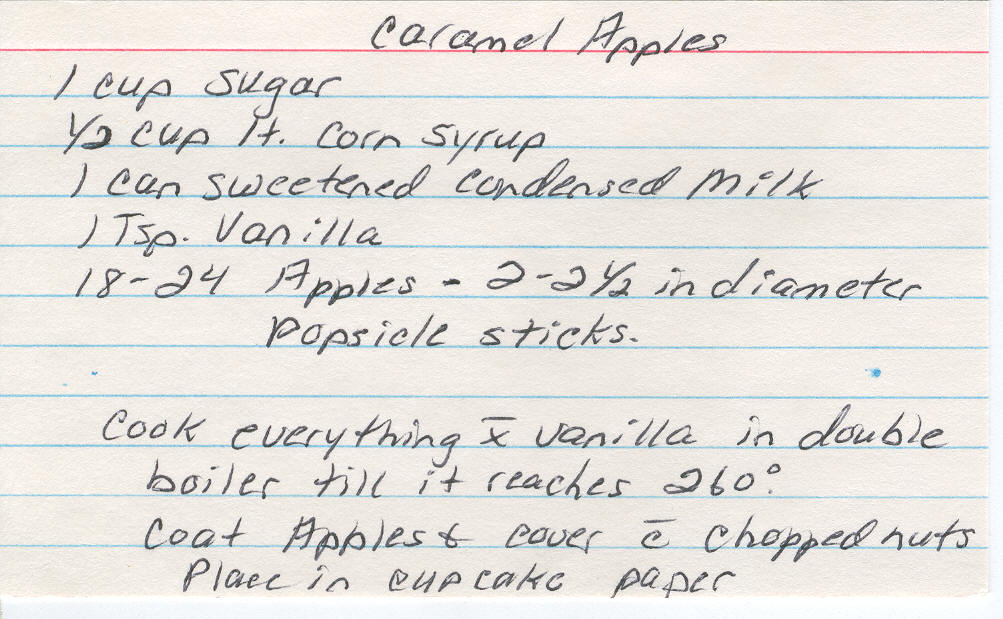 Caramel Apples
1 cup sugar
1/2 cup lt. corn syrup
1 can sweetened condensed milk
1 Tsp. Vanilla
18-24 Apples - 2-2 1/2 in diameter
Popsicle sticks.
Cook everything x̄ vanilla in double
boiler till it reaches 260°.
Coat Apples & cover c̄ chopped nuts
Place in cupcake paper